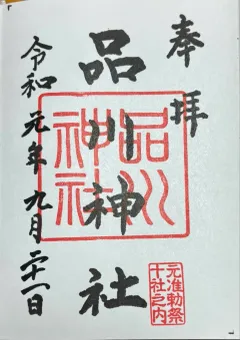 奉拝
品川神社
品川
神社
元准勅祭
十社之内
令和元年九月二十一日